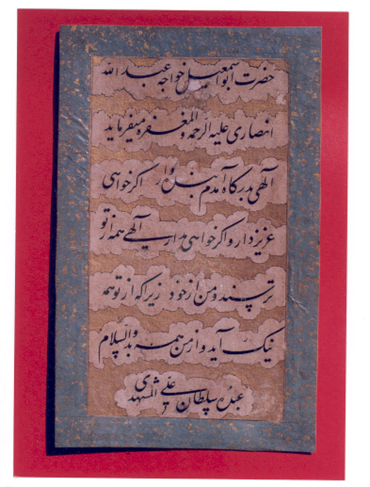 حضرت ابو اسمعیل خواجه عبد الله
انصاری علیه الرحمة و المغفره میفرماید
الهی بدرگاه آمدم بنده وار اگر خواهی
عزیز دار و اگر خواهی خوار الهی همه از تو
ترسند و من از خود زیرا که از تو همه
نیک آید و از من همه بد والسلام
عبده سلطان علی المشهدی